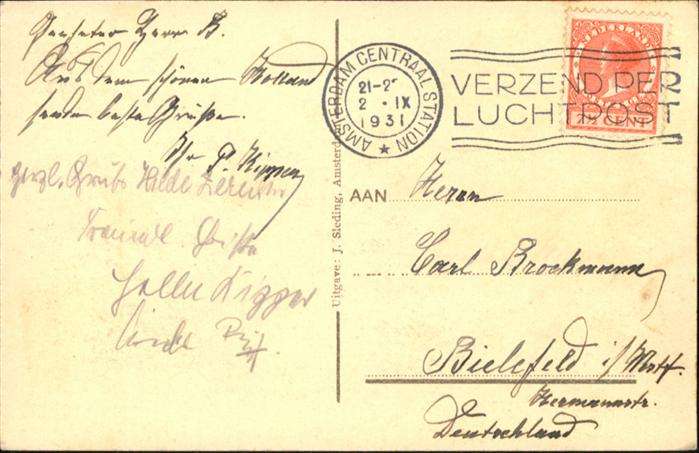 Geehrter Herr B.
Aus dem schönen Holland
senden beste Grüße.
Ihr P. Kipper
Herzl. Gruß Hilde
Freundl. Grüße
Kipper
AMSTERDAM CENTRAAL STATION
21-2
2 · IX
1931
VERZEND PER
LUCHTPOST
NEDERLAND
7½ CENT
Uitgave: J. Sleding, Amsterd
AAN Herrn
Carl Brockmann
Bielefeld i/Westf.
Hermannstr.
Deutschland